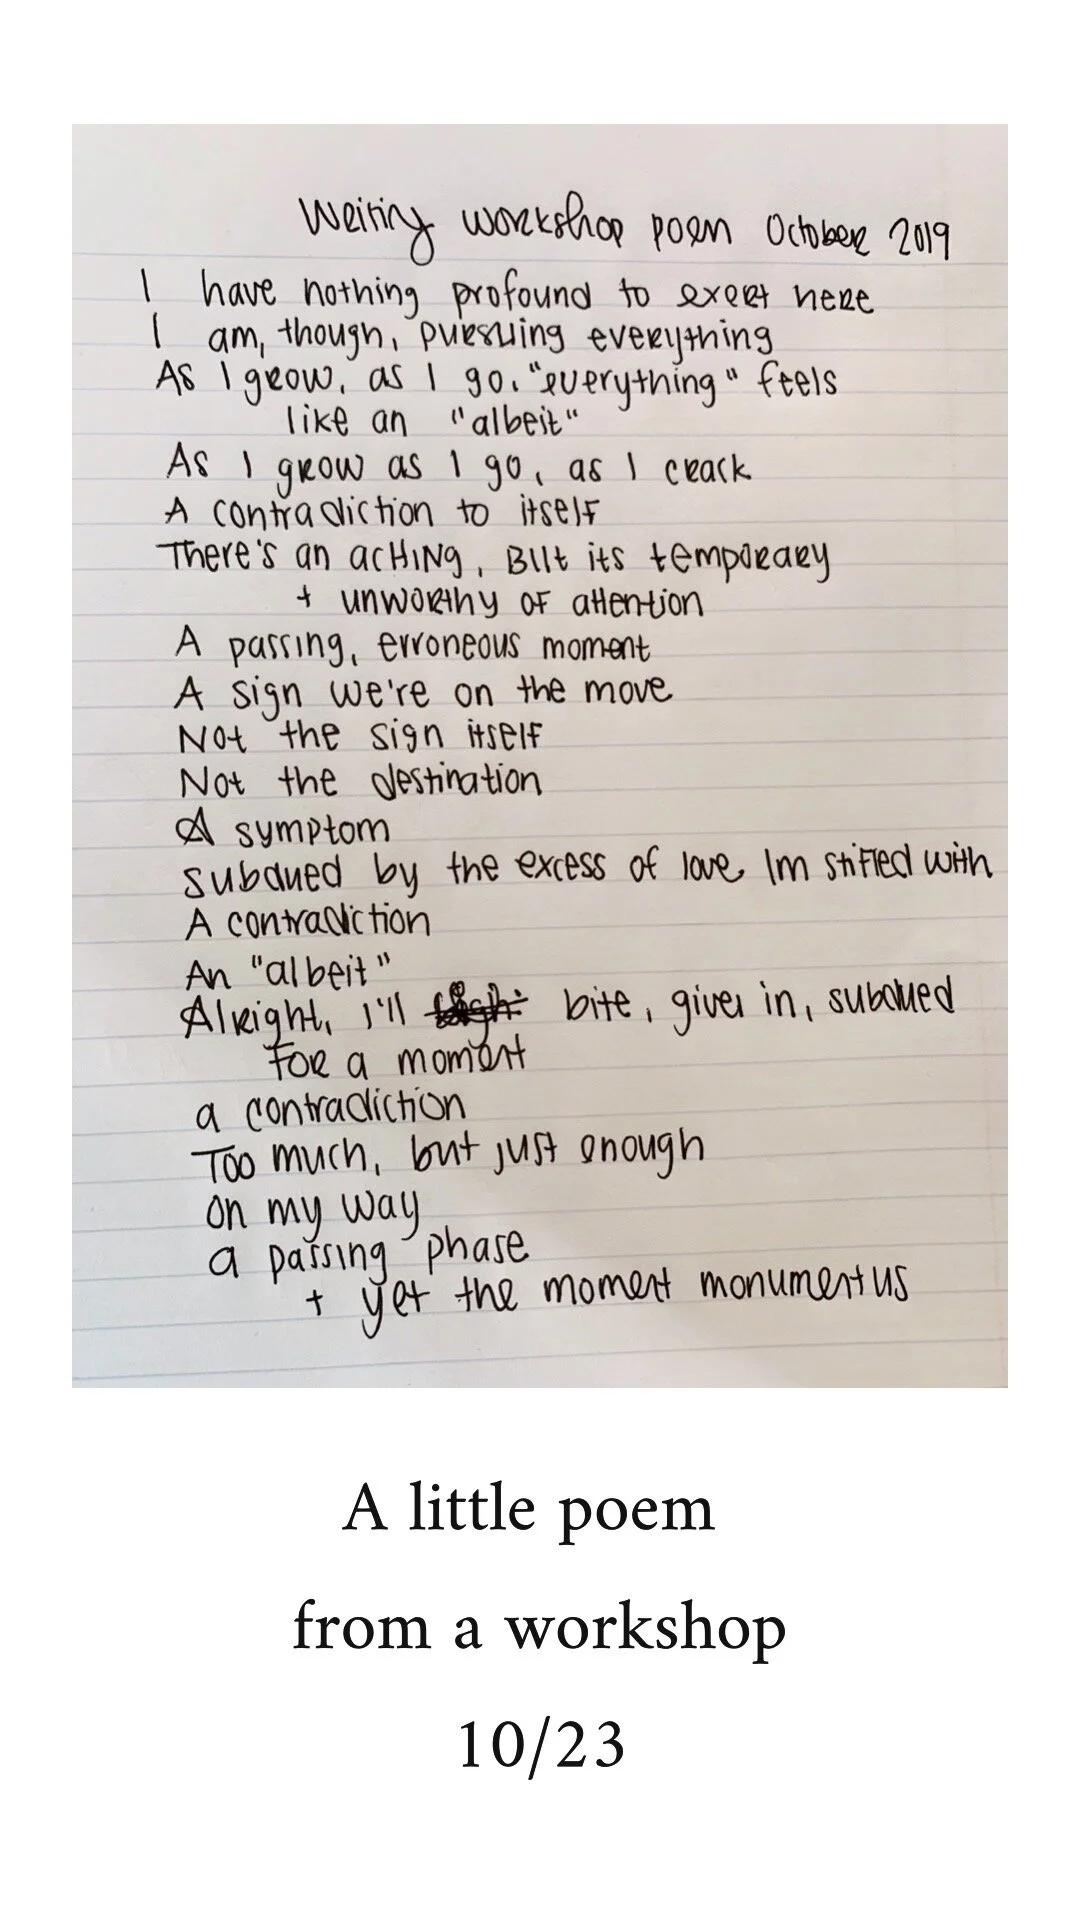 Writing workshop poem October 2019
I have nothing profound to exert here
I am, though, pursuing everything
As I grow, as I go, "everything" feels
like an "albeit"
As I grow as I go, as I crack
A contradiction to itself
There's an acHING, BUt its temporary
+ unworthy of attention
A passing, erroneous moment
A sign we're on the move
Not the sign itself
Not the destination
A symptom
subdued by the excess of love Im stifled with
A contradiction
An "albeit"
Alright, I'll bite, give in, subdued
for a moment
a contradiction
Too much, but just enough
on my way
a passing phase
+ yet the moment monumentus
A little poem
from a workshop
10/23